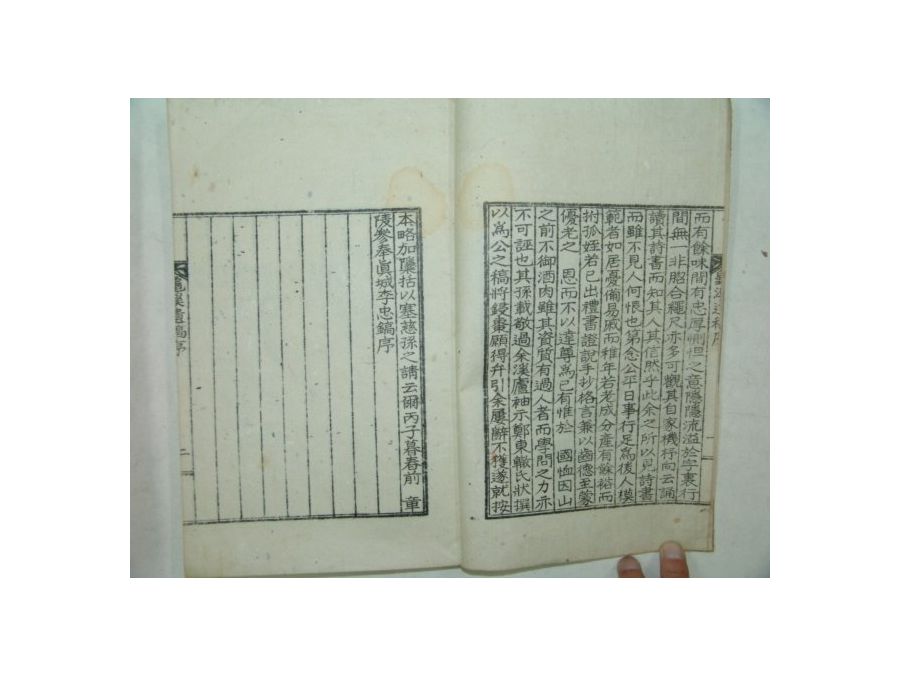 而有餘味間有忠厚惻怛之意隱隱流溢於字裏行
間無一非脗合繩尺亦多可觀其自家機行向云誦
讀其詩書而知其人其信然乎此余之所以見詩書
而雖不見人何恨也第念公平日事行足爲後人模
範者如居憂備易戚而稚年若老成分産有餘裕而
拊孤姪若己出禮書證說手抄格言兼以齒德至蒙
優老之 恩而不以達尊爲已有惟於 國恤因山
之前不御酒肉雖其資質有過人者而學問之力亦
不可誣也其孫載敬過余溪廬袖示鄭東轍氏狀撰
以爲公之稿將鋟棗願得弁引余屢辭不獲遂就按
本略加檃括以塞慈孫之請云爾丙子暮春前 童
陵參奉眞城李忠鎬序
遺稿序
二